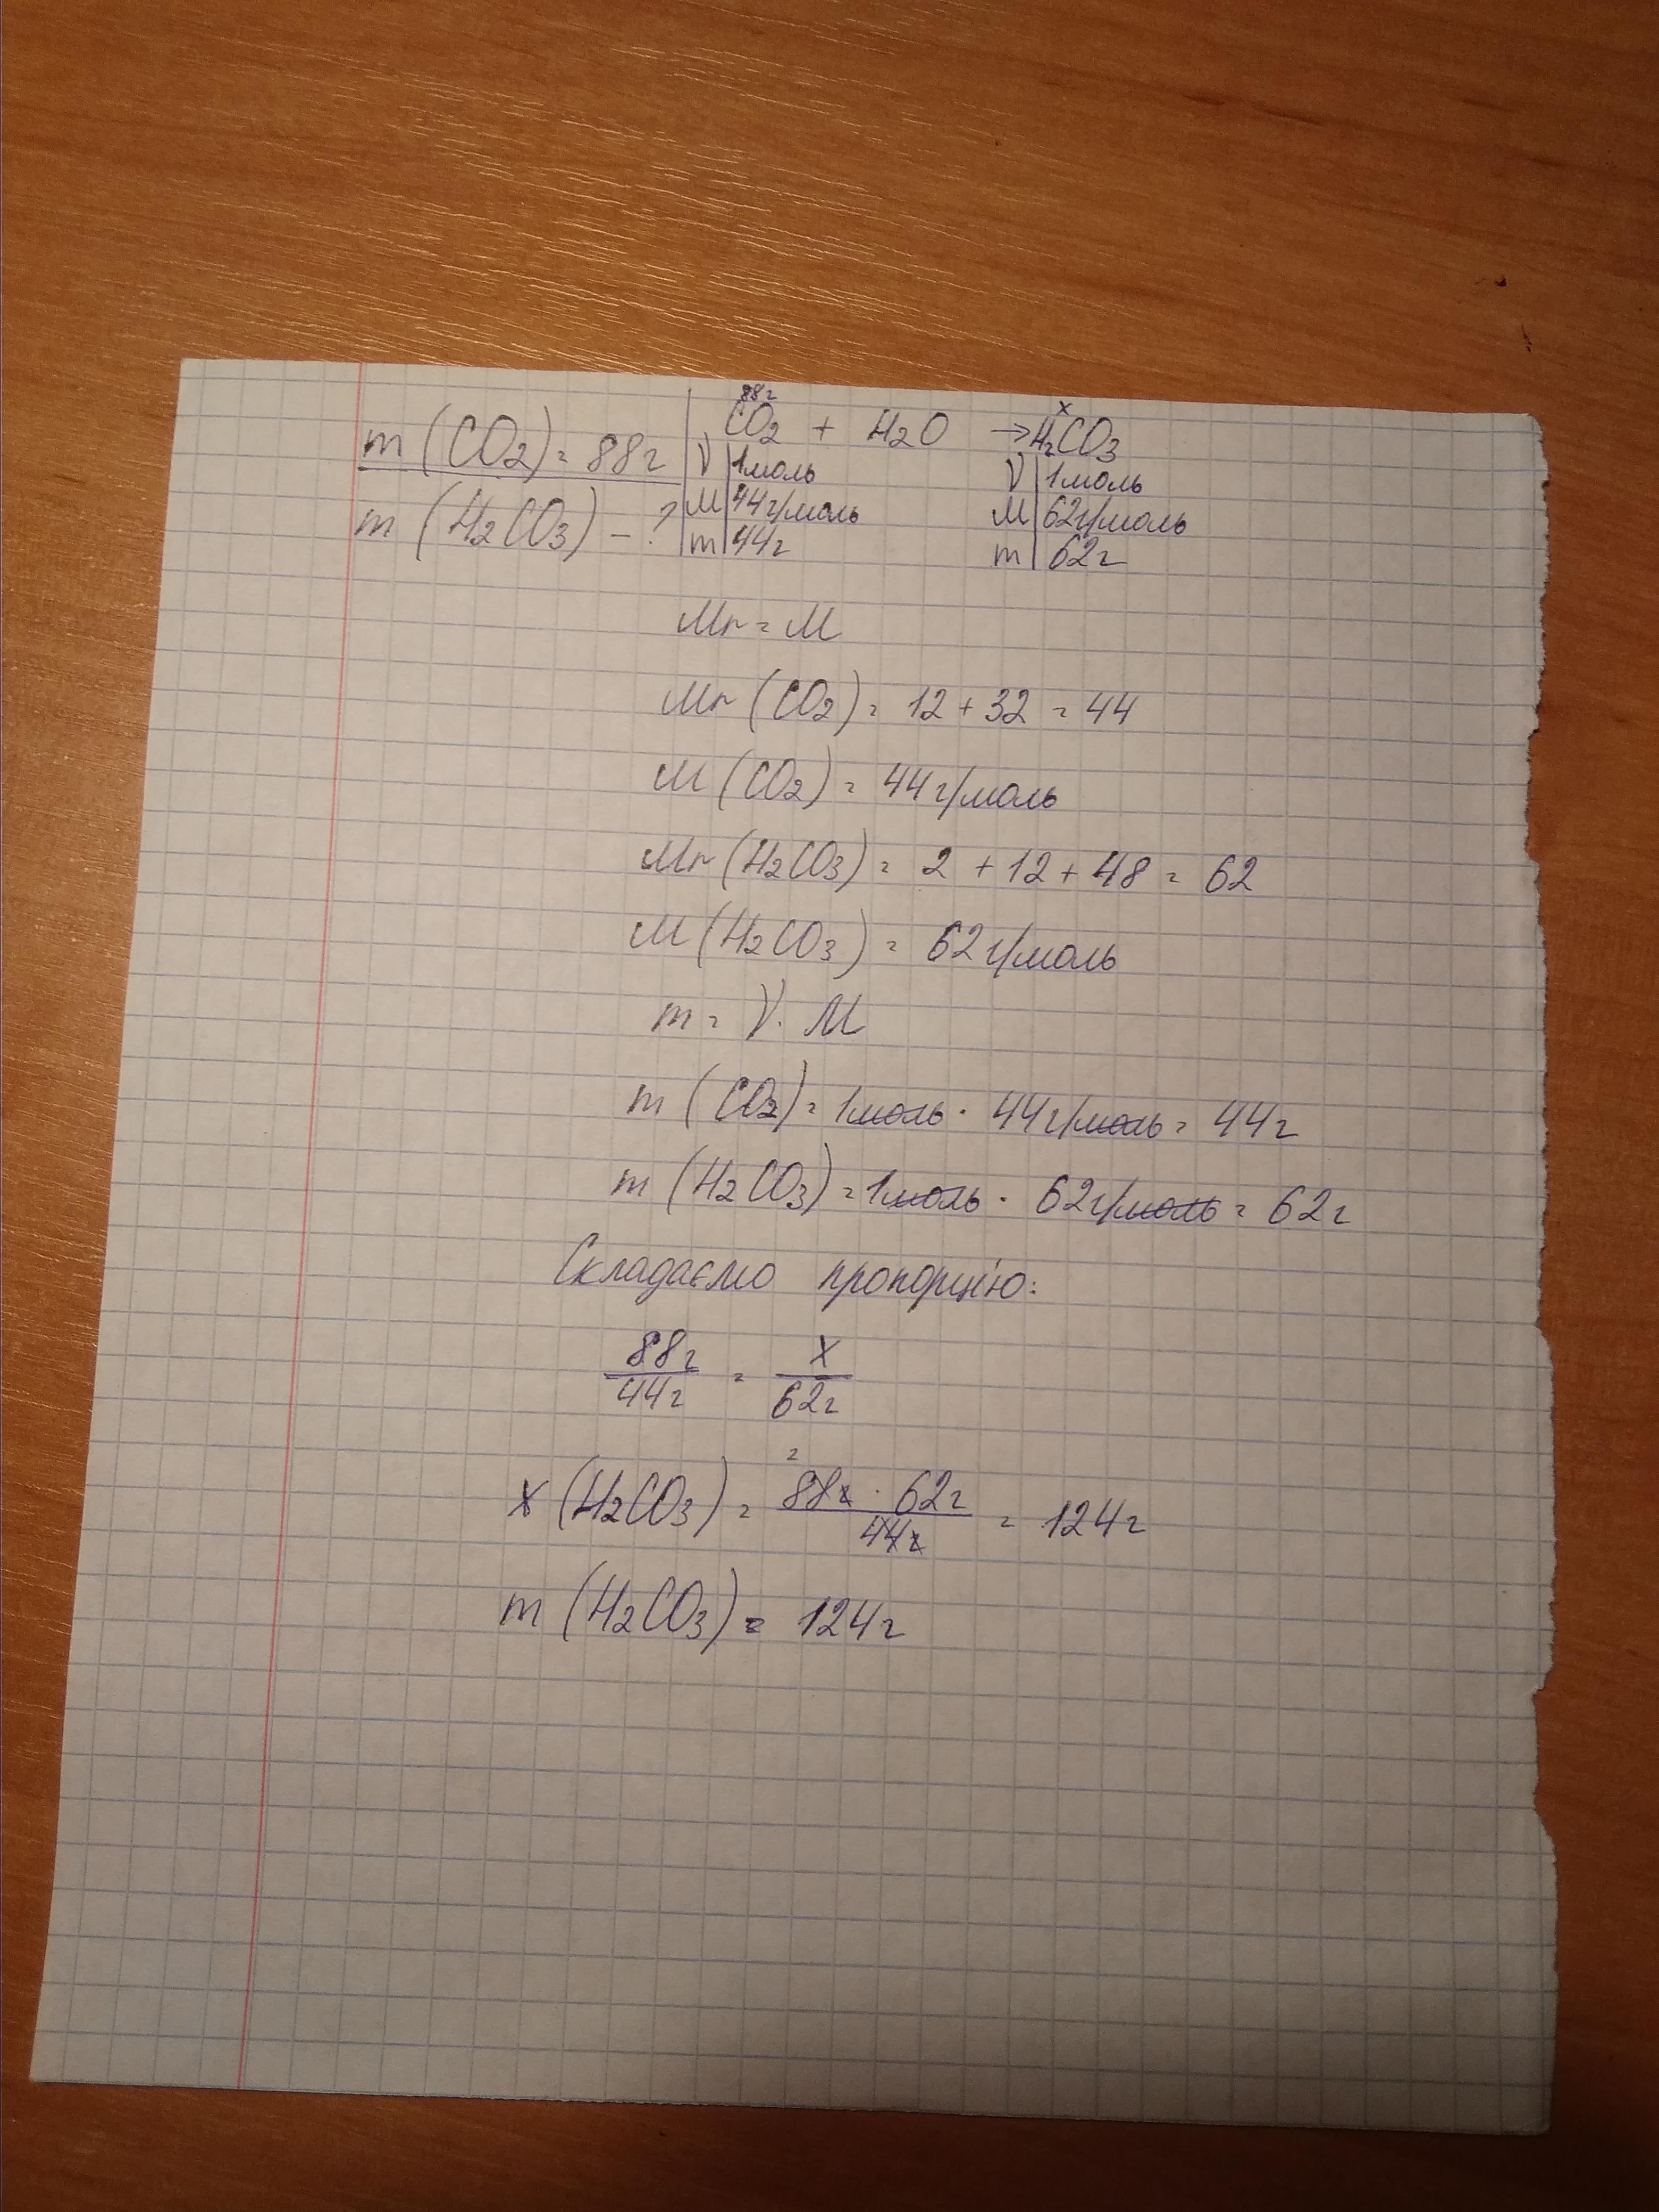 m (CO2) = 88г
m (H2CO3) - ?
88г x
CO2 + H2O → H2CO3
ν 1моль ν 1моль
M 44г/моль M 62г/моль
m 44г m 62г
Mr = M
Mr (CO2) = 12 + 32 = 44
M (CO2) = 44г/моль
Mr (H2CO3) = 2 + 12 + 48 = 62
M (H2CO3) = 62г/моль
m = ν · M
m (CO2) = 1моль · 44г/моль = 44г
m (H2CO3) = 1моль · 62г/моль = 62г
Складаємо пропорцію:
88г x
— = —
44г 62г
2
x (H2CO3) = 88г · 62г / 44г = 124г
m (H2CO3) = 124г